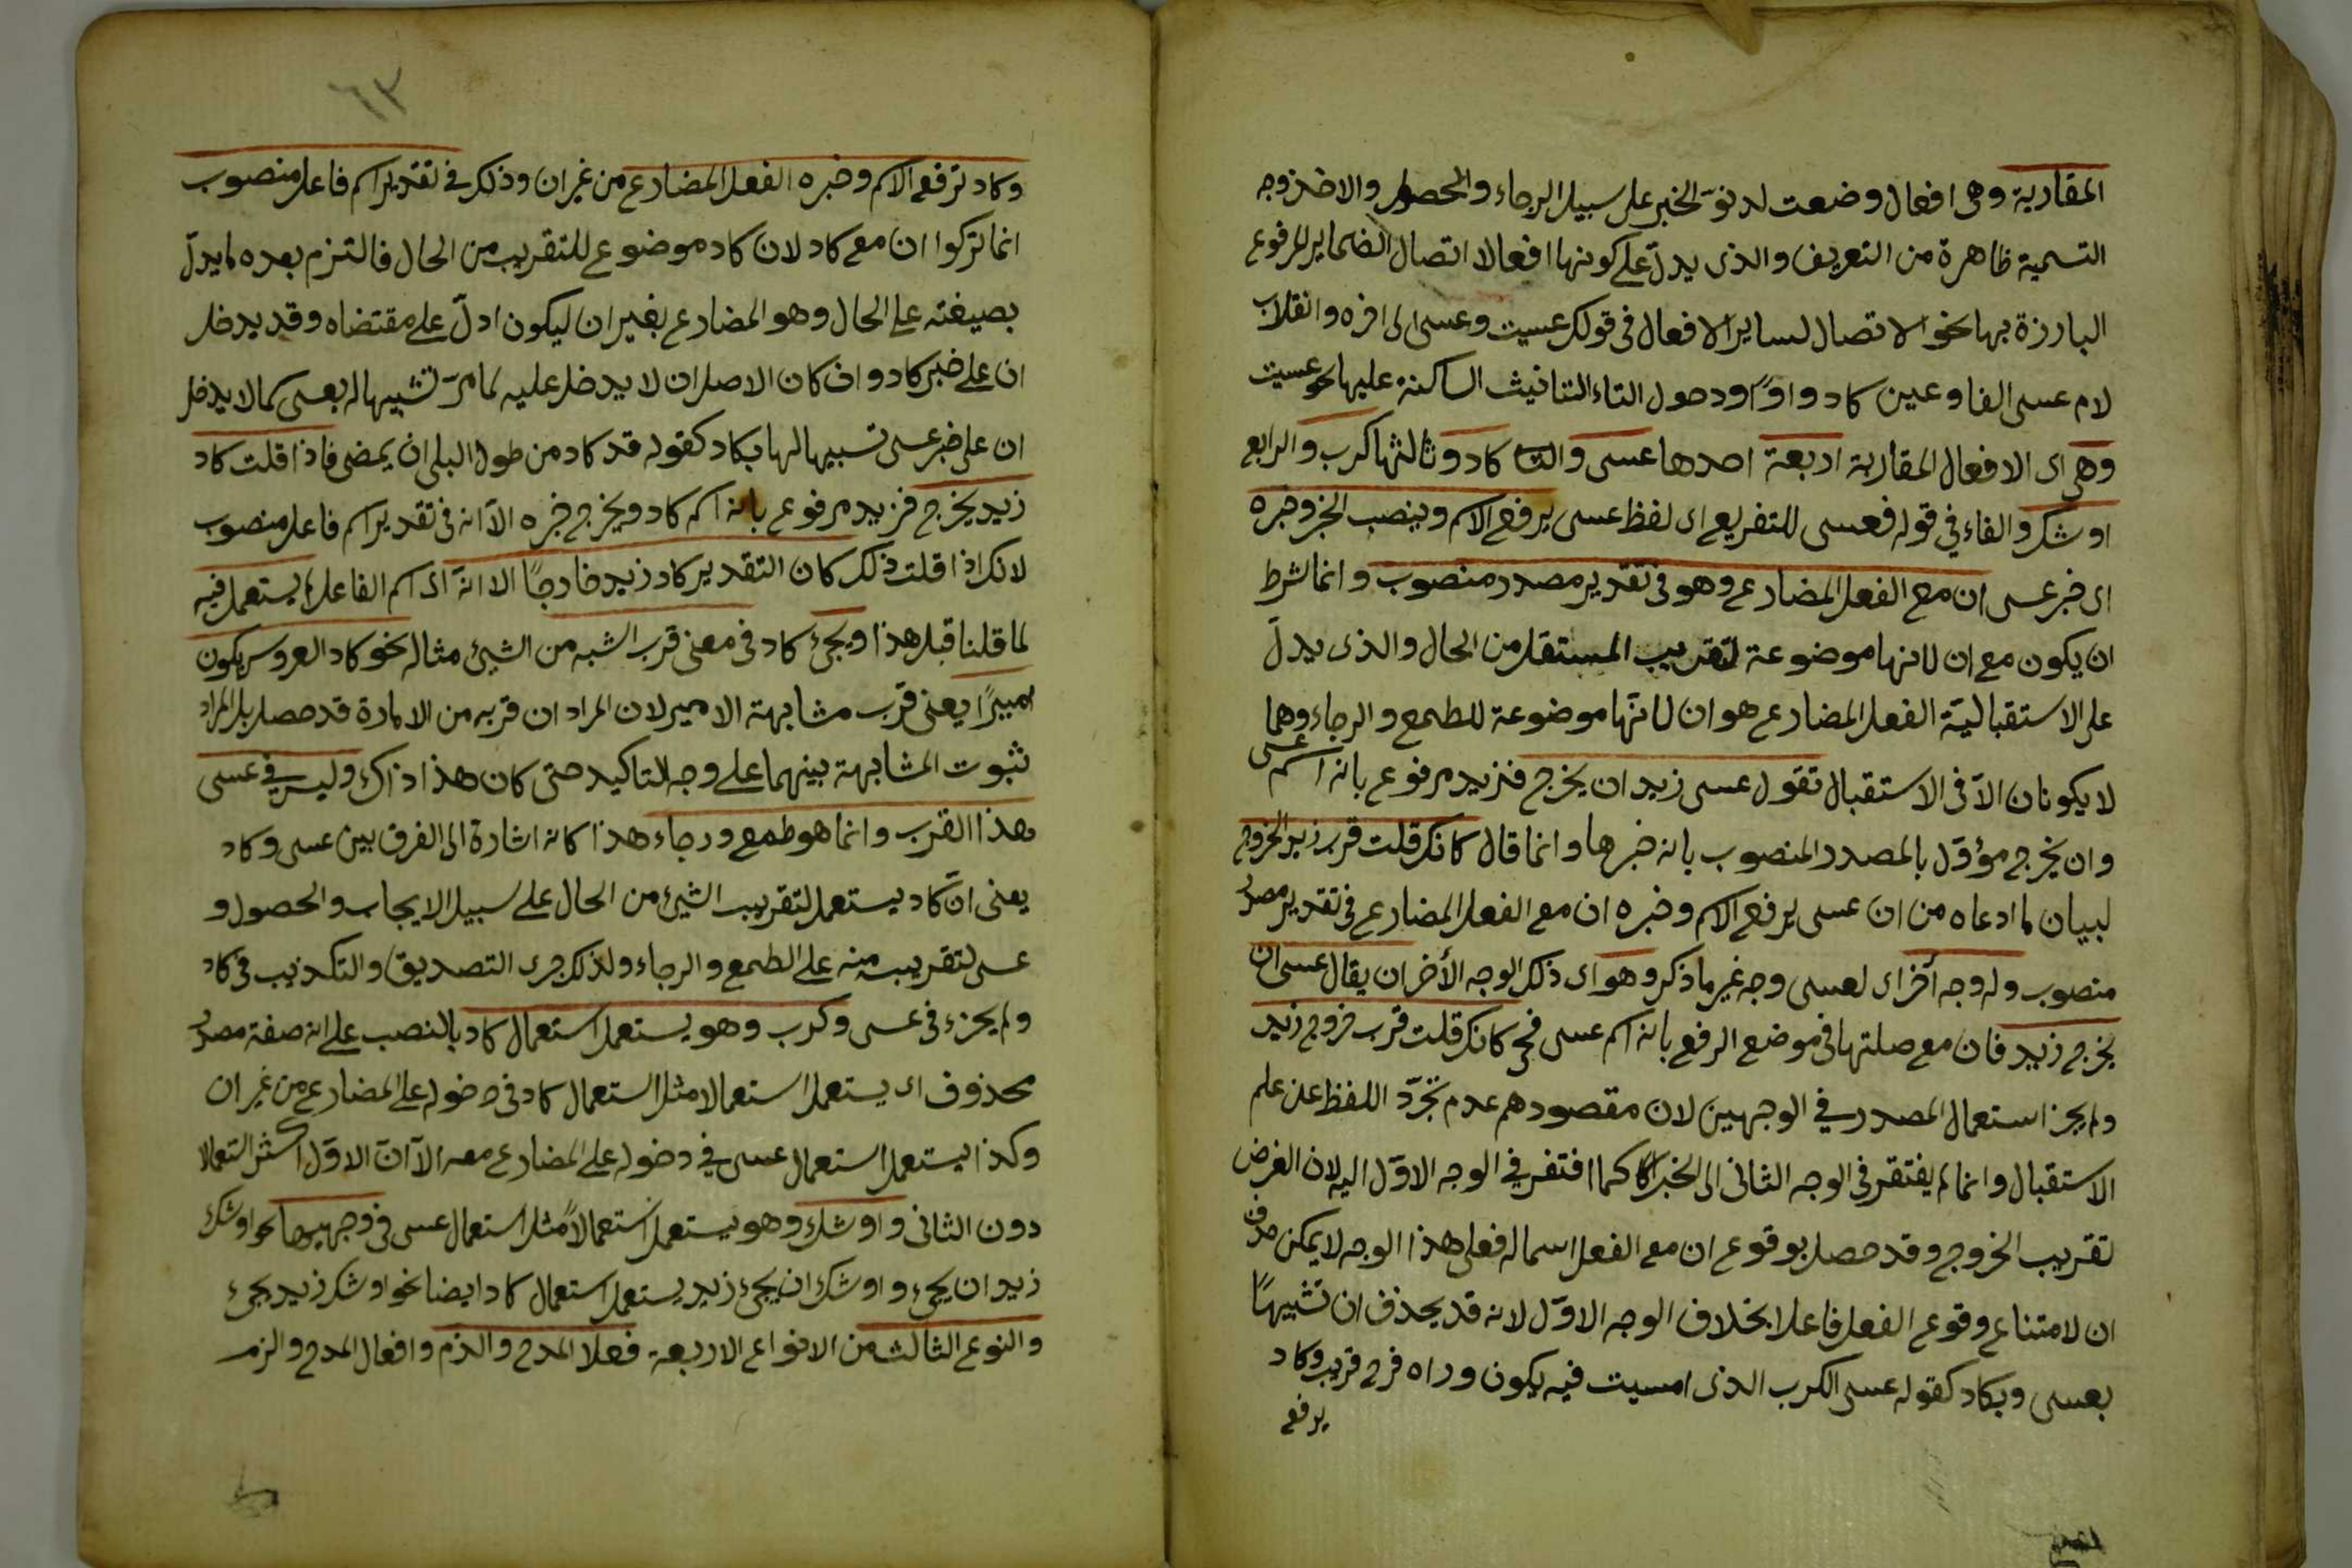 المقاربة وهى افعال وضعت لدنوّ الخبر على سبيل الرجاء والحصول والاخذ وجه
التسمية ظاهرة من التعريف والذى يدلّ على كونها افعالا اتصال الضماير المرفوع
البارزة بها نحو الاتصال لساير الافعال فى قولك عسيت وعسى الى اخره وانقلاب
لام عسى الفا وعين كاد واوًا ودحول التاء التانيث الساكنة عليها نحو عسيت
وهى اى الافعال المقاربة اربعة احدها عسى والثا كاد وثالثها كرب والرابع
اوشك والفاء في قوله فعسى للتفريع اى لفظ عسى يرفع الاسم وينصب الخبر وخبره
اى خبر عسى ان مع الفعل المضارع وهو فى تقدير مصدر منصوب وانما شرط
ان يكون مع ان لانها موضوعة لتقريب المستقبل من الحال والذى يدلّ
على الاستقبالية الفعل المضارع هو ان لانّها موضوعة للطمع والرجاء وهما
لا يكونان الّا فى الاستقبال تقول عسى زيد ان يخرج فزيد مرفوع بانه اسم عسى
وان يخرج مؤوّل بالمصدر المنصوب بانه خبرها وانما قال كانك قلت قرب زيد الخروج
لبيان لما ادعاه من ان عسى يرفع الاسم وخبره ان مع الفعل المضارع فى تقدير مصدر
منصوب وله وجه أخر اى لعسى وجه غير ما ذكر وهو اى ذلك الوجه الأخر ان يقال عسى ان
يخرج زيد فان مع صلتها فى موضع الرفع بانه اسم عسى فحى كانك قلت قرب خروج زيد
ولم يجز استعمال المصدر في الوجهين لان مقصودهم عدم تجرّد اللفظ عن علم
الاستقبال وانما لم يفتقر فى الوجه الثانى الى الخبر كما افتقر في الوجه الاوّل اليه لان الغرض
تقريب الخروج وقد حصل بوقوع ان مع الفعل اسما له فعلى هذا الوجه لا يمكن حذف
ان لامتناع وقوع الفعل فاعلا بخلاف الوجه الاوّل لانه قد يحذف ان تشبيهًا
بعسى وبكاد كقوله عسى الكرب الذى امسيت فيه يكون وراه فرج قريب وكاد
يرفع
٦٣
وكاد ترفع الاسم وخبره الفعل المضارع من غير ان وذلك في تقدير اسم فاعل منصوب
انما تركوا ان مع كاد لان كاد موضوع للتقريب من الحال فالتزم بعده لما يدلّ
بصيغته على الحال وهو المضارع بغير ان ليكون ادلّ على مقتضاه وقد يدخل
ان على خبر كاد وان كان الاصل ان لا يدخل عليه لما مرّ تشبيها له بعسى كما لا يدخل
ان على خبر عسى تسبيها لها بكاد كقوله قد كاد من طول البلى ان يمضى فاذا قلت كاد
زيد يخرج فزيد مرفوع بانه اسم كاد ويخرج خبره الّا انه فى تقدير اسم فاعل منصوب
لانك اذا قلت ذلك كان التقدير كاد زيد خارجًا الا انّه اى اسم الفاعل لم يستعمل فيه
لما قلنا قبل هذا ويجئ كاد فى معنى قرب الشبه من الشيئ مثاله نحو كاد العروس يكون
اميرًا يعنى قرب مشابهة الامير لان المراد ان قربه من الامارة قد حصل بل المراد
ثبوت المشابهة بينهما على وجه التاكيد حتى كان هذا اذاك وليس في عسى
هذا القرب وانما هو طمع ورجاء هذا كانه اشارة الى الفرق بين عسى وكاد
يعنى انّ كاد يستعمل لتقريب الشيئ من الحال على سبيل الايجاب والحصول و
عسى لتقريبه منه على الطمع والرجاء ولذلك جرى التصديق والتكذيب فى كاد
ولم يجزء فى عسى وكرب وهو يستعمل استعمال كاد بالنصب على انه صفة مصدر
محذوف اى يستعمل استعمالا مثل استعمال كاد فى دخوله على المضارع من غير ان
وكذا يستعمل استعمال عسى في دخوله على المضارع معه الّا انّ الاوّل اكثر استعمالا
دون الثانى واوشك وهو يستعمل استعمالاً مثل استعمال عسى فى وجهيها نحو اوشك
زيد ان يجئ واوشك ان يجئ زيد يستعمل استعمال كاد ايضا نحو اوشك زيد يجئ
والنوع الثالث من الانواع الاربعة فعلا المدح والذم وافعال المدح والذم